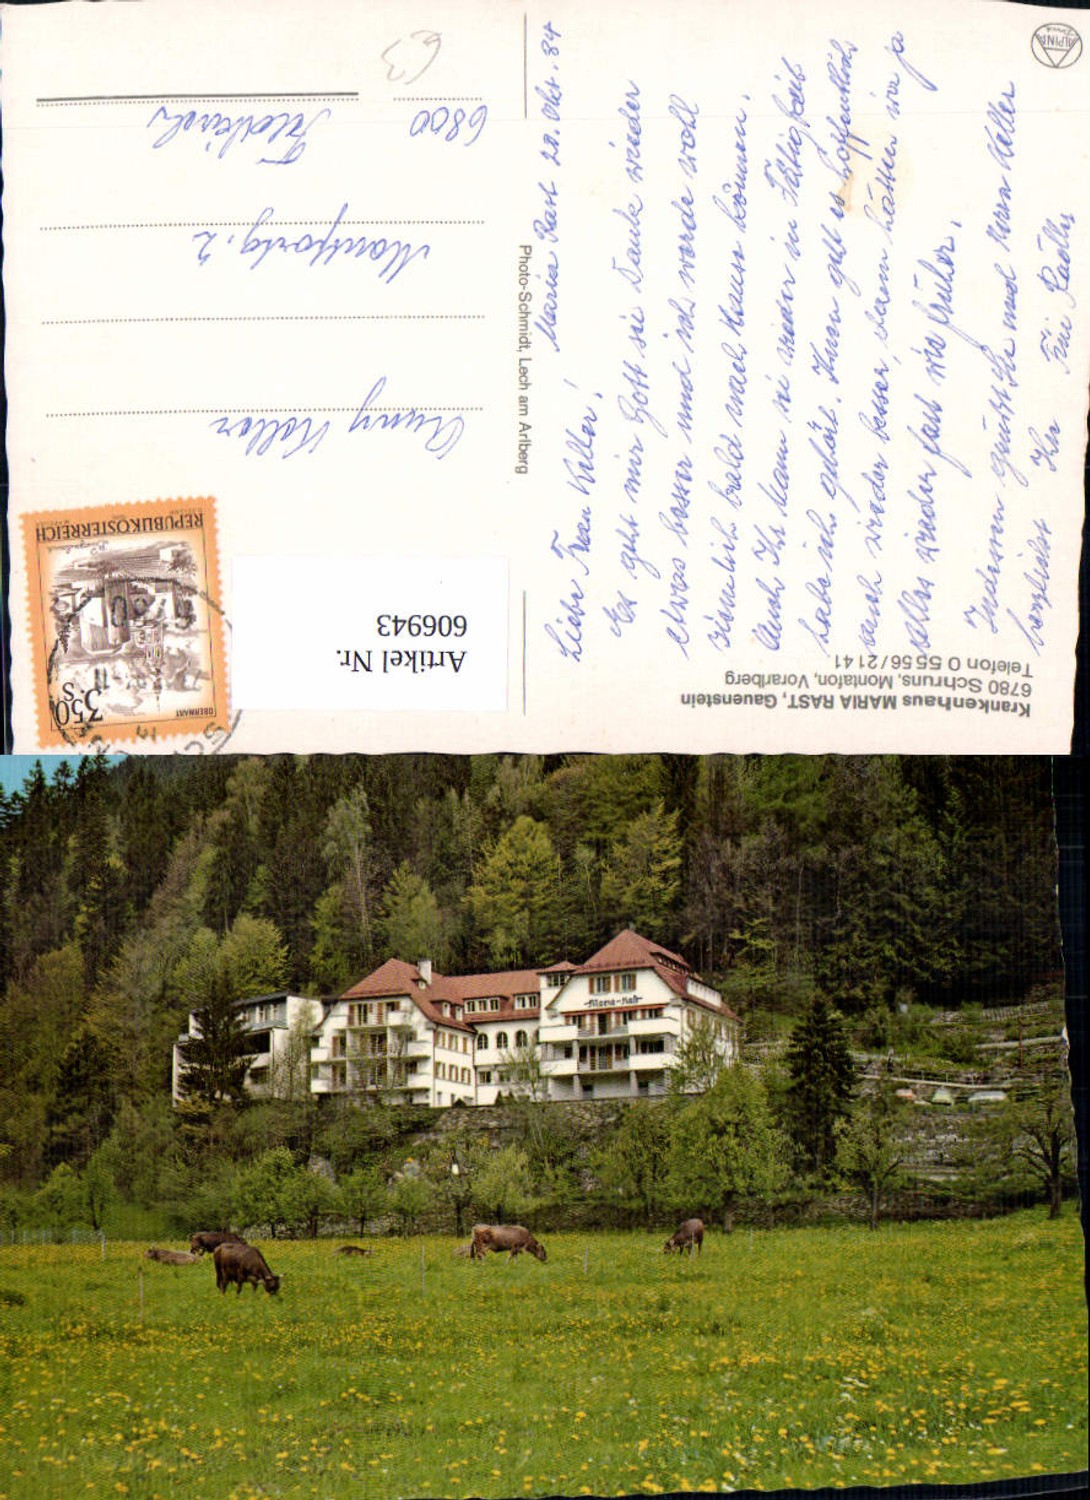 Krankenhaus MARIA RAST, Gauenstein
6780 Schruns, Montafon, Vorarlberg
Telefon 0 55 56/2141
Maria Rast 20. Okt. 84
Liebe Frau Keller!
Es geht mir Gott sei Dank wieder
etwas besser und ich werde wohl
ziemlich bald nach Hause können.
Auch Ihr Mann sei wieder in
habe ich gehört. Ihnen geht es hoffentlich
auch wieder besser, dann hätten wir ja
alles wieder fast wie früher.
Indessen grüsst Sie und Herrn Keller
herzlichst Ihr
Photo-Schmidt, Lech am Arlberg
ALPINA
Druck
Artikel Nr.
606943
3.50
S
OBERWART
REPUBLIK ÖSTERREICH
Keller
Montfortg. 2
6800 Feldkirch
63
Maria-Rast